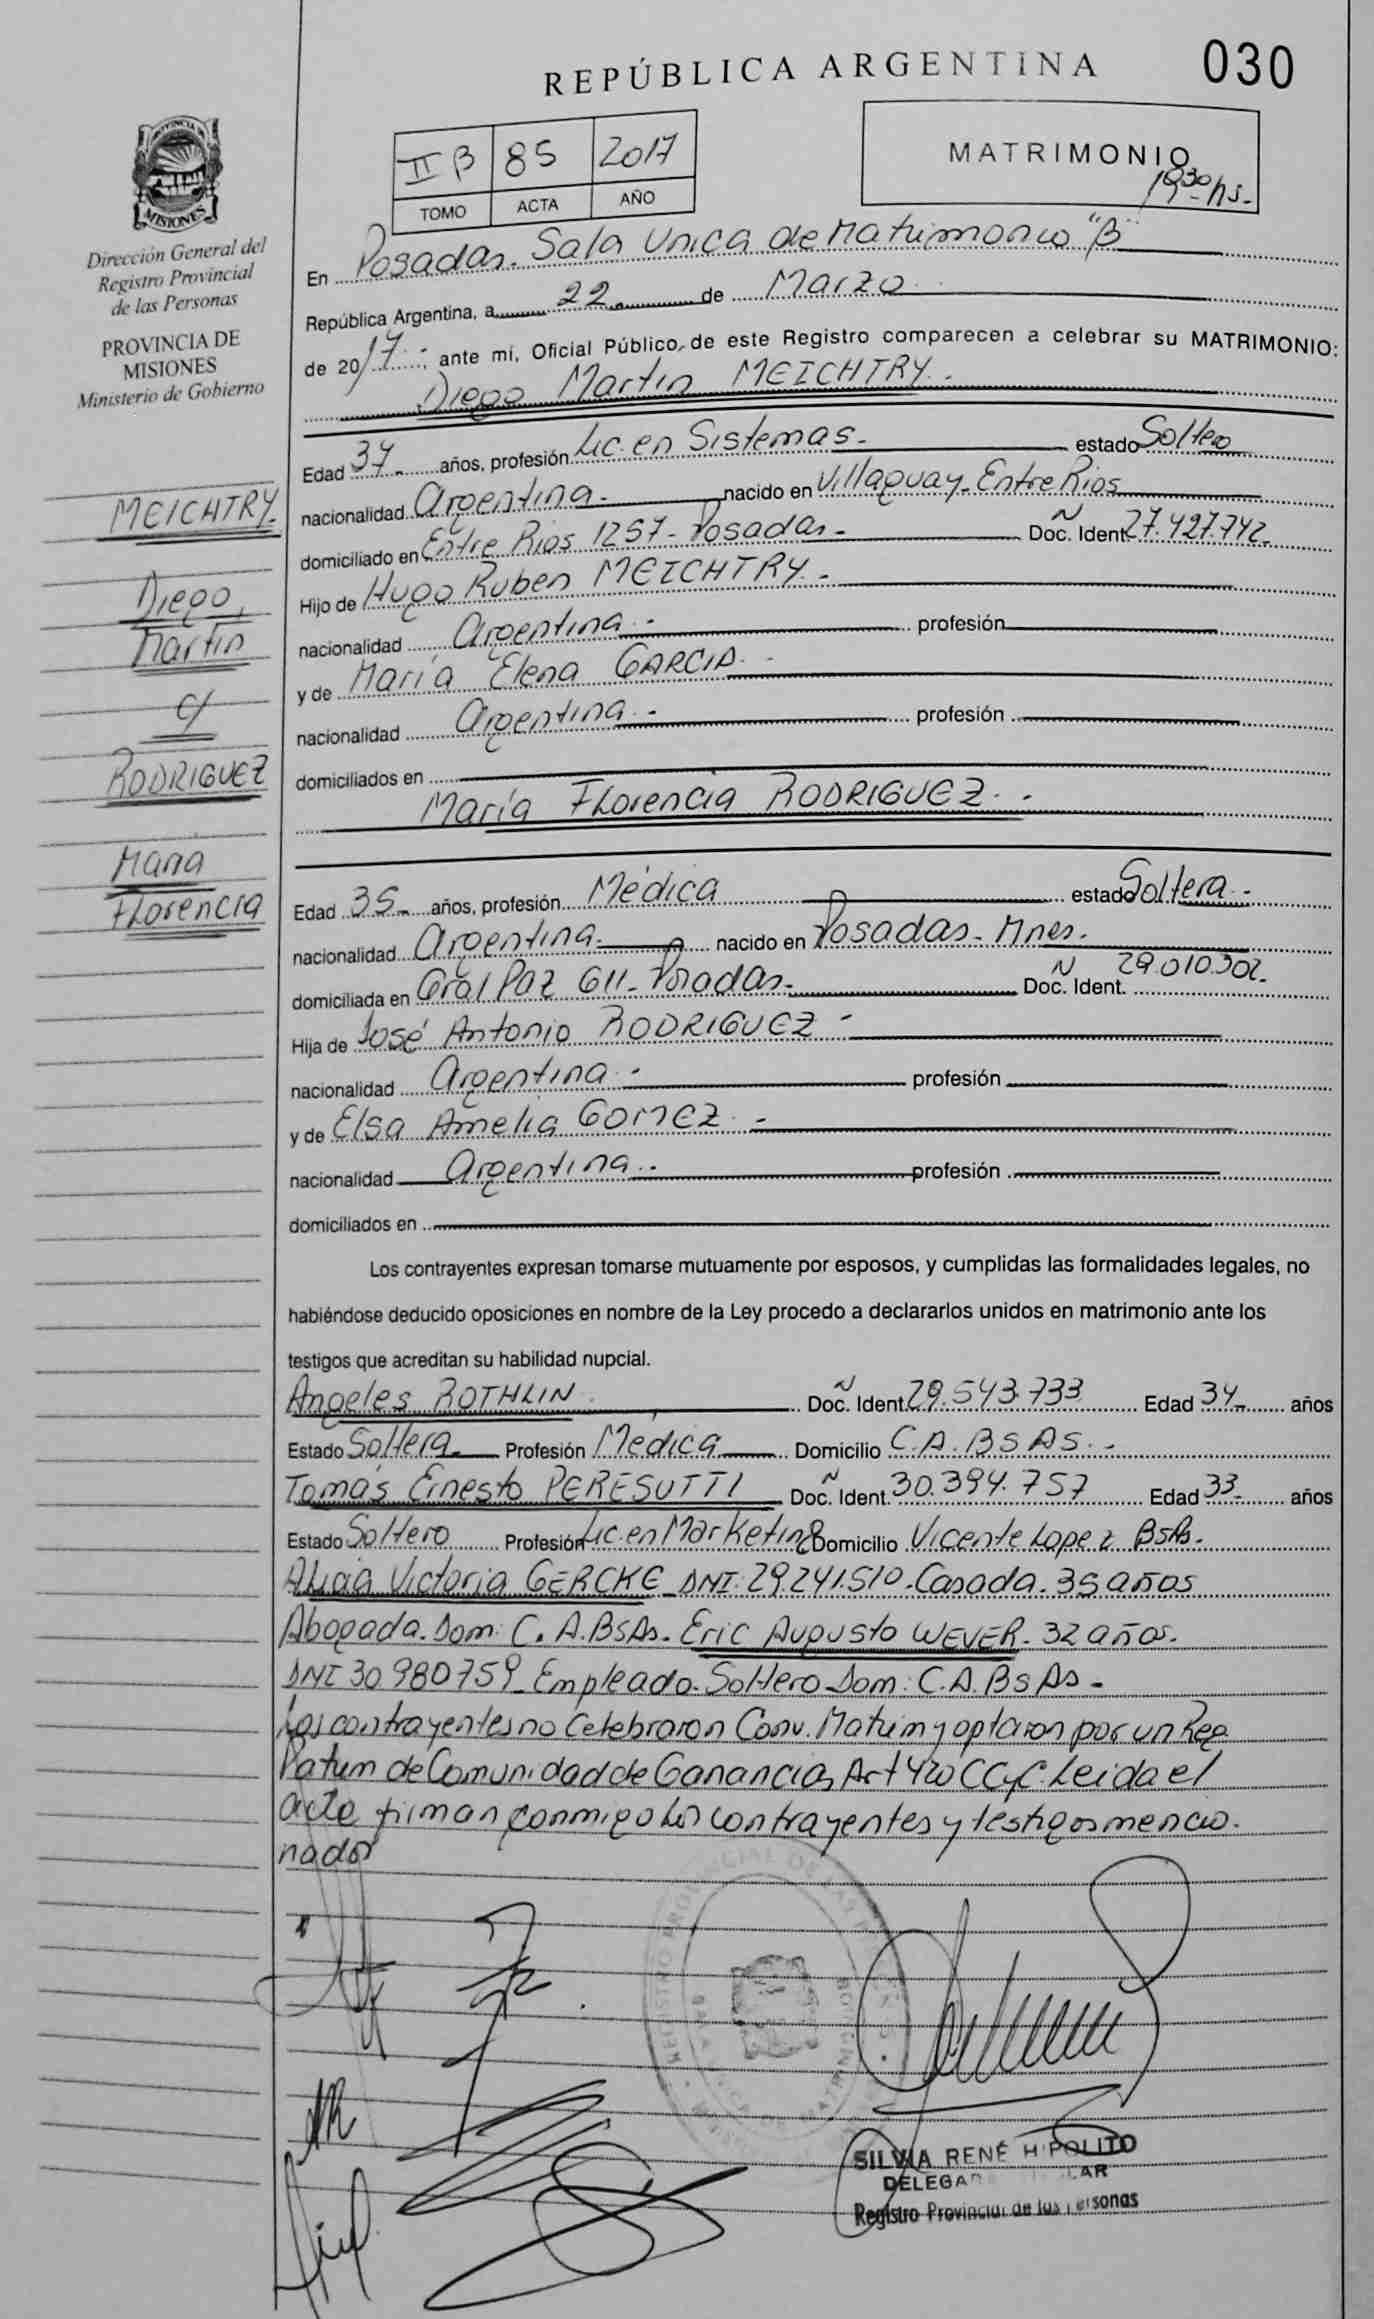 REPÚBLICA ARGENTINA 030
PROVINCIA DE
MISIONES
Dirección General del
Registro Provincial
de las Personas
PROVINCIA DE
MISIONES
Ministerio de Gobierno
II B 85 2017
TOMO ACTA AÑO
MATRIMONIO
19:30 hs.-
En Posadas. Sala Unica de Matrimonio "B"
República Argentina, a 22 de Marzo
de 2017 ; ante mí, Oficial Público, de este Registro comparecen a celebrar su MATRIMONIO:
Diego Martin MEICHTRY.
Edad 37 años, profesión Lic. en Sistemas.- estado Soltero
nacionalidad Argentina. nacido en Villaguay. Entre Rios
domiciliado en Entre Rios 1257 - Posadas - Doc. Ident. N 27.427.742.
Hijo de Hugo Ruben MEICHTRY.
nacionalidad Argentina.- profesión
y de María Elena GARCIA.-
nacionalidad Argentina.- profesión
domiciliados en
María Florencia RODRIGUEZ.-
Edad 35 años, profesión Médica estado Soltera.-
nacionalidad Argentina. nacido en Posadas - Mnes.
domiciliada en Gral Paz 611 - Posadas. Doc. Ident. N 29.010.302.
Hija de José Antonio RODRIGUEZ -
nacionalidad Argentina.- profesión
y de Elsa Amelia GOMEZ.-
nacionalidad Argentina.- profesión
domiciliados en
MEICHTRY
Diego,
Martin
c/
RODRIGUEZ
Maria
Florencia
Los contrayentes expresan tomarse mutuamente por esposos, y cumplidas las formalidades legales, no
habiéndose deducido oposiciones en nombre de la Ley procedo a declararlos unidos en matrimonio ante los
testigos que acreditan su habilidad nupcial.
Angeles ROTHLIN Doc. Ident. N 29.543.733 Edad 34 años
Estado Soltera Profesión Médica Domicilio C.A.BsAs.-
Tomás Ernesto PERESUTTI Doc. Ident. N 30.394.757 Edad 33 años
Estado Soltero Profesión Lic. en Marketing Domicilio Vicente Lopez BsAs.
Alicia Victoria GERCKE DNI: 29.241.510. Casada. 35 años
Abogada. Dom: C.A.BsAs. Eric Augusto WEVER. 32 años.
DNI 30.980759. Empleado. Soltero Dom: C.A.BsAs.-
Los contrayentes no Celebraron Conv. Matrim y optaron por un Reg
Patrim de Comunidad de Ganancias Art 420 CCyC. Leida el
acta firman conmigo los contrayentes y testigos mencio-
nados
REGISTRO PROVINCIAL DE LAS
SILVIA RENÉ HIPOLITO
Registro Provincial de las Personas